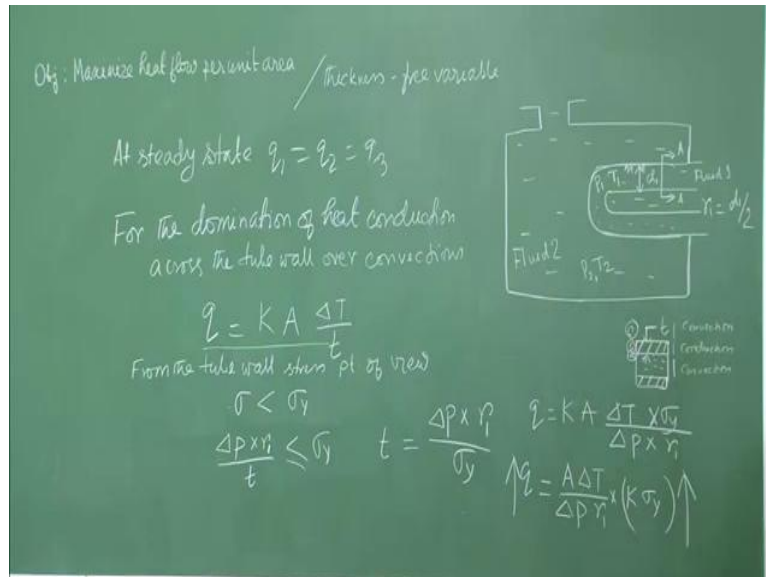 Obj: Maximize heat flow per unit area / Thickness - free variable
At steady state q₁ = q₂ = q₃
For the domination of heat conduction
across the tube wall over convections
q = KA ΔT/t
From the tube wall stress pt of view
σ < σy
ΔP × r₁/t ≤ σy
t = ΔP × r₁/σy
q = KA ΔT × σy/ΔP × r₁
↑q = AΔT/ΔP r₁ × (K σy)↑
A
P₁ T₁
d₁
Fluid 1
A
r₁ = d₁/2
Fluid 2
P₂, T₂
t
Convection
Conduction
Convection